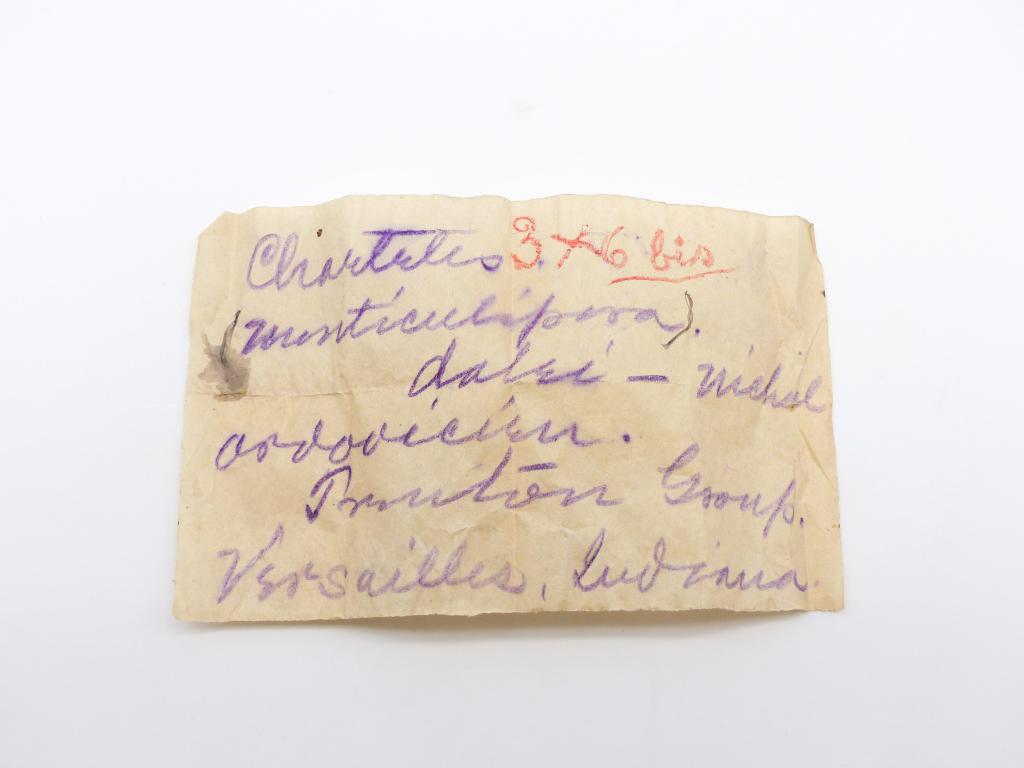 Chaetetes 3 + 6 bis
(monticulipora).
dalei - Nichol
ordovicien.
Trenton Group.
Versailles, Indiana.